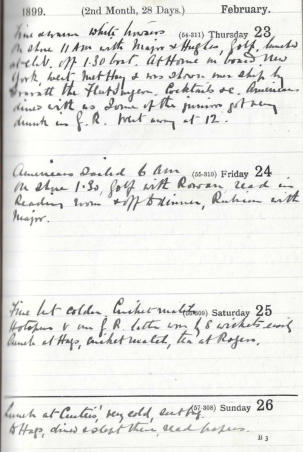 1899. (2nd Month, 28 Days.) February.
Fine & warm White trousers (54-311) Thursday 23
On shore 11 AM with Major & Hughes, Golf, lunch
at Club. off 1.30 boat. At Home on board New
York, went, met Hay & was shown over ship by
the Fleet Surgeon. Cocktails &c. Americans
dined with us. Some of the juniors got very
drunk in G.R. Went away at 12.
Americans sailed 6 am (55-310) Friday 24
On shore 1.30, Golf with Rowan, read in
Reading room & off to dinner, Rubicon with
Major.
Fine but colder. Cricket match (56-309) Saturday 25
v our G.R. latter won by 8 wickets easily
lunch at Hays, cricket match, tea at Rogers.
Lunch at very cold, (57-308) Sunday 26
to Hays, dined & slept there, read papers.
B 3